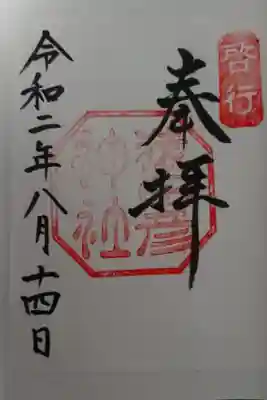 啓行
奉拝
猿田彦
神社
令和二年八月十四日